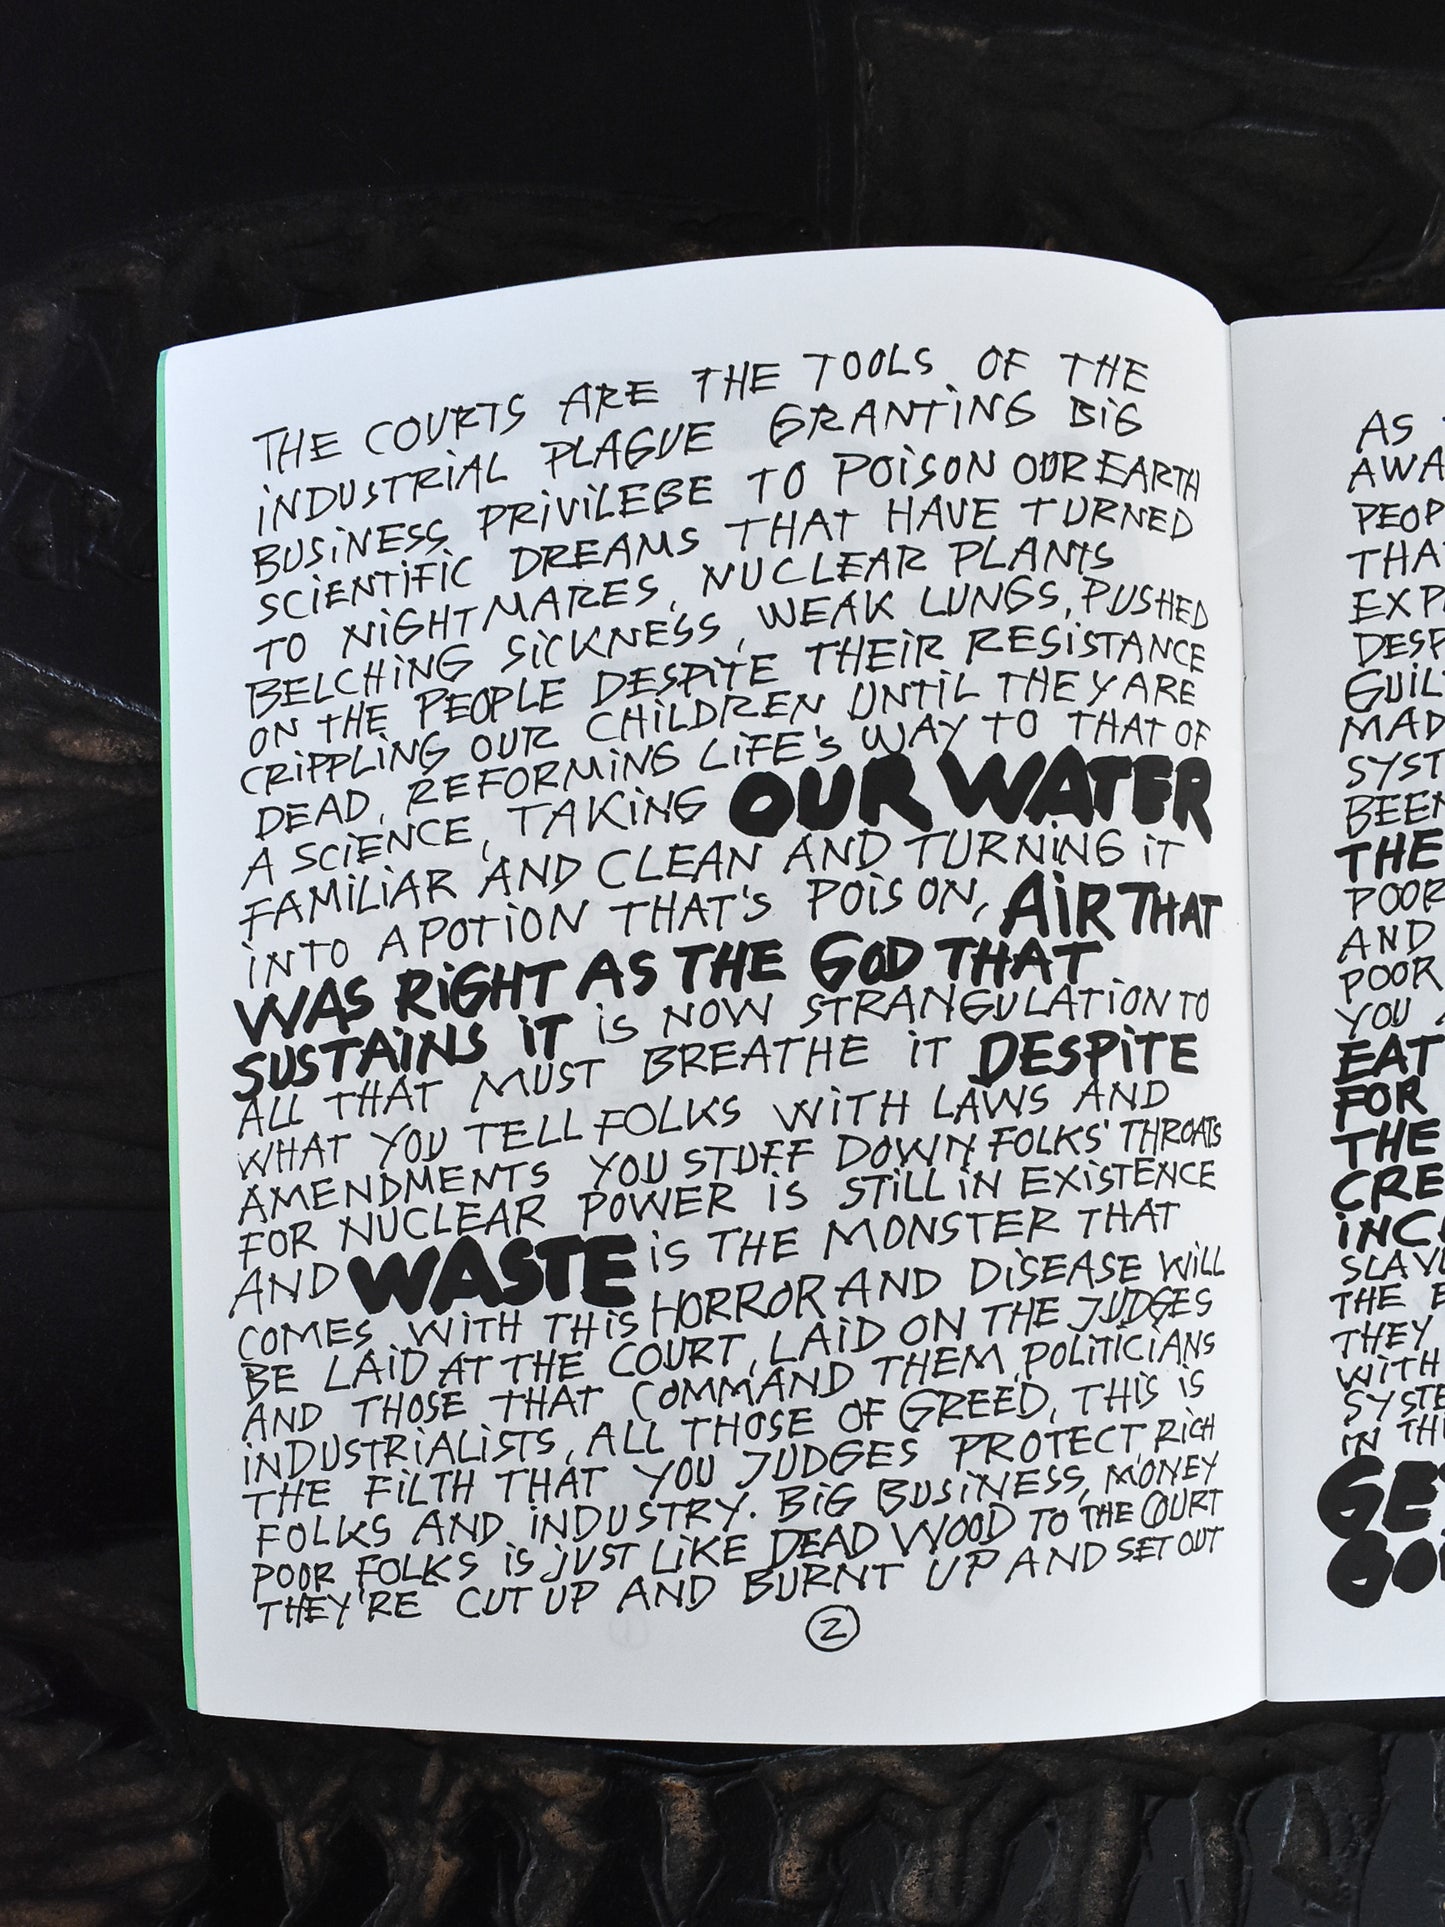 THE COURTS ARE THE TOOLS OF THE
INDUSTRIAL PLAGUE GRANTING BIG
BUSINESS PRIVILEGE TO POISON OUR EARTH
SCIENTIFIC DREAMS THAT HAVE TURNED
TO NIGHTMARES, NUCLEAR PLANTS
BELCHING SICKNESS, WEAK LUNGS, PUSHED
ON THE PEOPLE DESPITE THEIR RESISTANCE
CRIPPLING OUR CHILDREN UNTIL THEY ARE
DEAD, REFORMING LIFE'S WAY TO THAT OF
A SCIENCE, TAKING OUR WATER
FAMILIAR AND CLEAN AND TURNING IT
INTO A POTION THAT'S POISON, AIR THAT
WAS RIGHT AS THE GOD THAT
SUSTAINS IT IS NOW STRANGULATION TO
ALL THAT MUST BREATHE IT DESPITE
WHAT YOU TELL FOLKS WITH LAWS AND
AMENDMENTS YOU STUFF DOWN FOLKS' THROATS
FOR NUCLEAR POWER IS STILL IN EXISTENCE
AND WASTE IS THE MONSTER THAT
COMES WITH THIS HORROR AND DISEASE WILL
BE LAID AT THE COURT, LAID ON THE JUDGES
AND THOSE THAT COMMAND THEM, POLITICIANS
INDUSTRIALISTS, ALL THOSE OF GREED, THIS IS
THE FILTH THAT YOU JUDGES PROTECT RICH
FOLKS AND INDUSTRY. BIG BUSINESS, MONEY
POOR FOLKS IS JUST LIKE DEAD WOOD TO THE COURT
THEY'RE CUT UP AND BURNT UP AND SET OUT
2
AS
AWA
PEOP
THA
EXP
DESP
GUIL
MAD
SYST
BEEN
THE
POOR
AND
POOR
YOU
EAT
FOR
THE
CRE
INC
SLAV
THE
THEY
WITH
SYSTE
IN TH
GE
GO